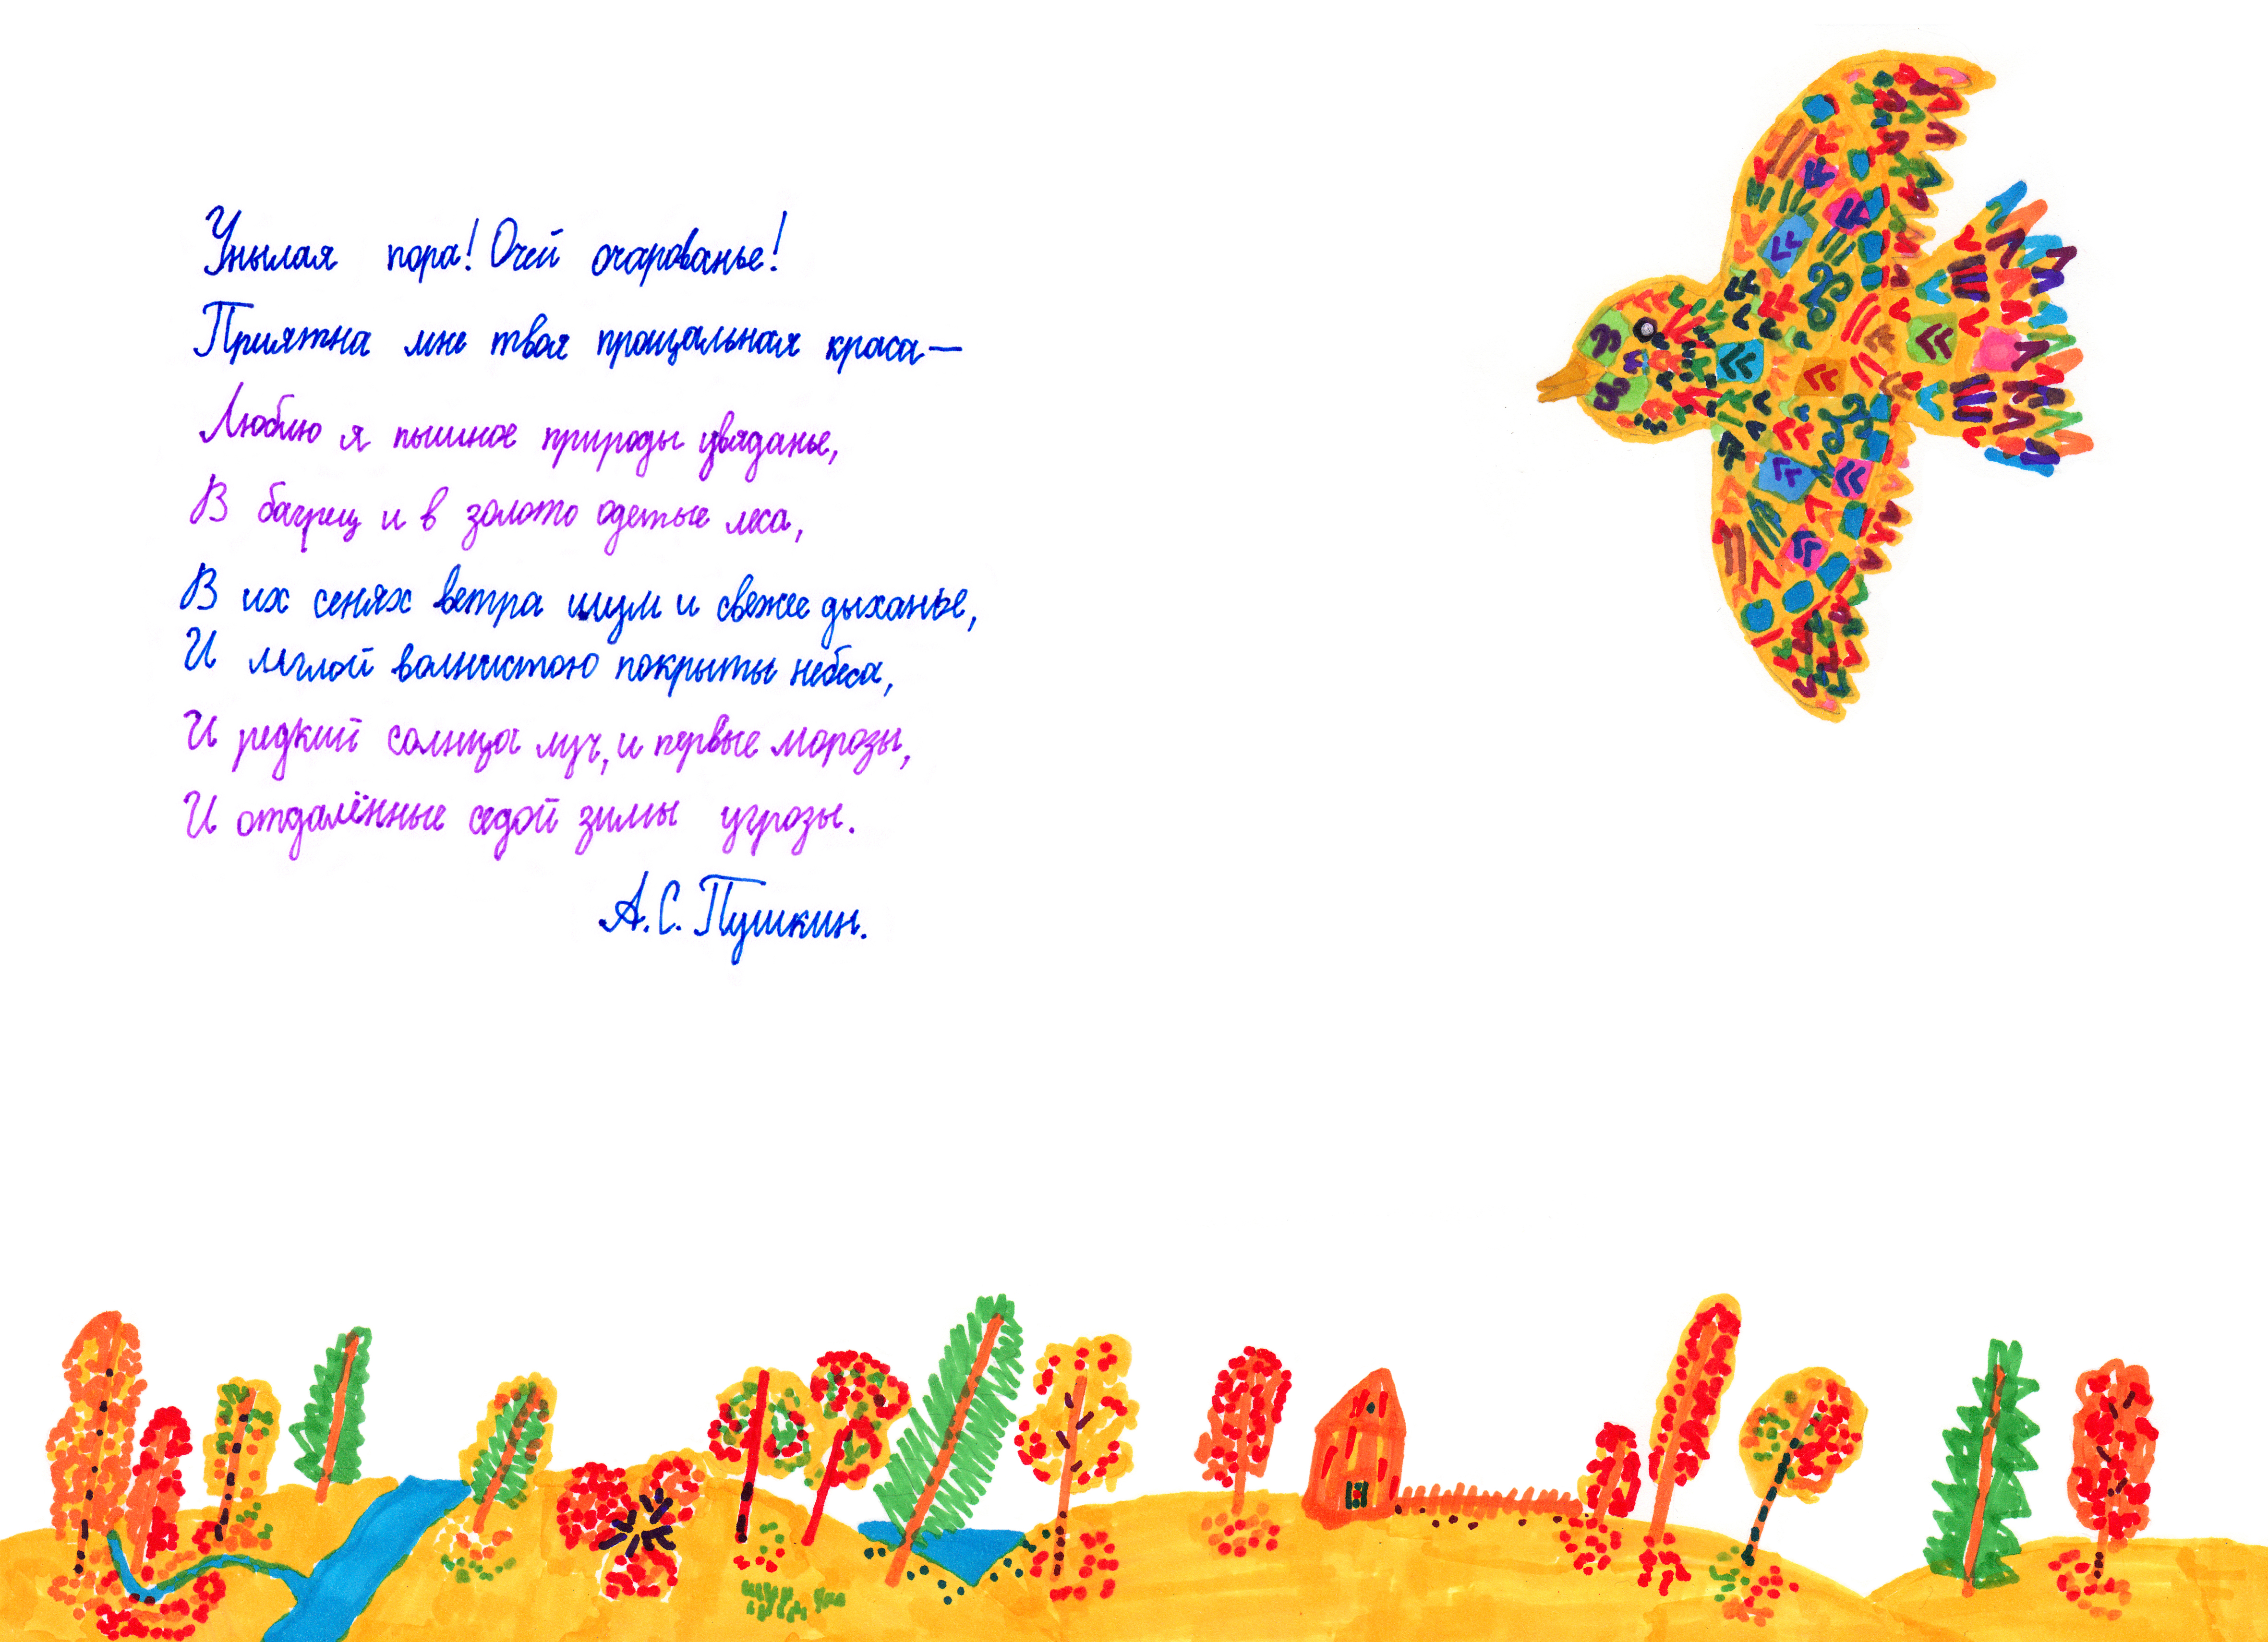 Унылая пора! Очей очарованье!
Приятна мне твоя прощальная краса—
Люблю я пышное природы увяданье,
В багрец и в золото одетые леса,
В их сенях ветра шум и свежее дыханье,
И мглой волнистою покрыты небеса,
И редкий солнца луч, и первые морозы,
И отдалённые седой зимы угрозы.
А.С. Пушкин.